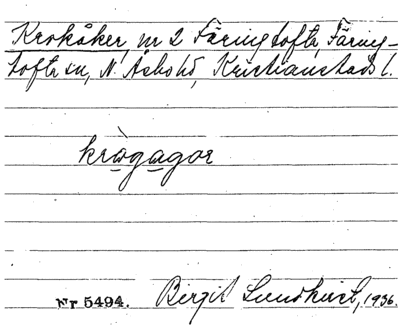 Krokåker, nr 2 Färingtofta, Färing-
tofta sn, N. Åsbo hd, Kristianstads l.
kràgagor
Nr 5494. Birgit Lundkvist, 1936.